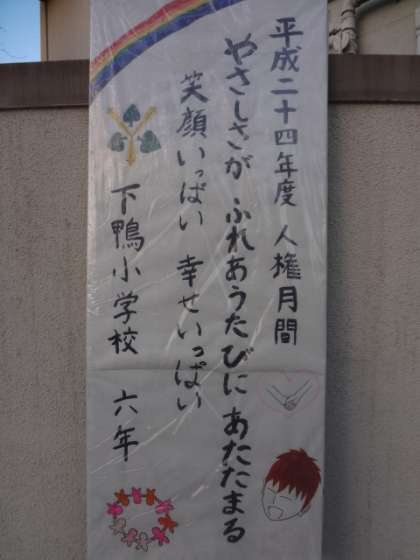 平成二十四年度 人権月間
やさしさが ふれあうたびに あたたまる
笑顔いっぱい 幸せいっぱい
下鴨小学校 六年